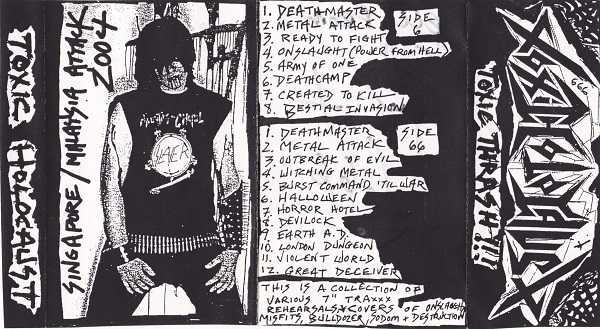 TOXIC HOLOCAUST
SINGAPORE/MALAYSIA ATTACK
2004
SLAYER
SIDE
6
1. DEATHMASTER
2. METAL ATTACK
3. READY TO FIGHT
4. ONSLAUGHT (POWER FROM HELL)
5. ARMY OF ONE
6. DEATHCAMP
7. CREATED TO KILL
8. BESTIAL INVASION
SIDE
66
1. DEATHMASTER
2. METAL ATTACK
3. OUTBREAK OF EVIL
4. WITCHING METAL
5. BURST COMMAND 'TIL WAR
6. HALLOWEEN
7. HORROR HOTEL
8. DEVILOCK
9. EARTH A.D.
10. LONDON DUNGEON
11. VIOLENT WORLD
12. GREAT DECEIVER
THIS IS A COLLECTION OF
VARIOUS 7" TRAXXX
REHEARSALS & COVERS OF ONSLAUGHT
MISFITS, BULLDOZER, SODOM + DESTRUCTION
TOXIC THRASH!!!
TOXIC HOLOCAUST
666